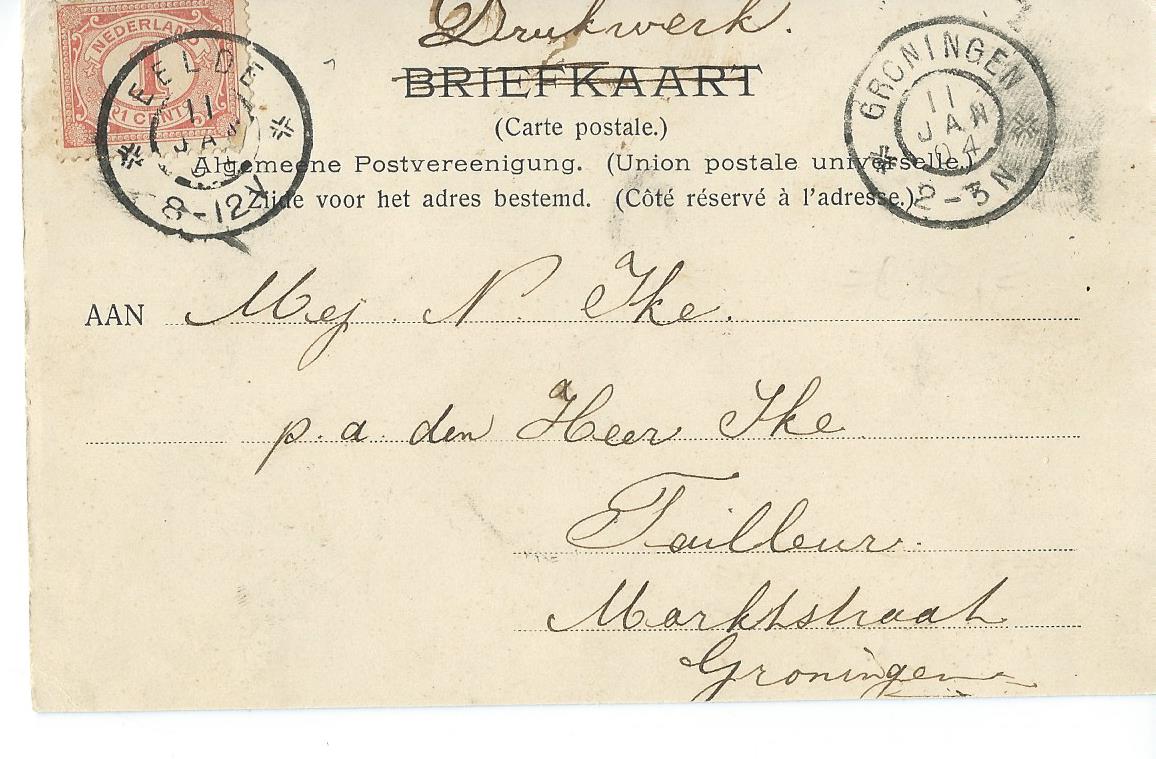 Drukwerk.
BRIEFKAART
(Carte postale.)
Algemeene Postvereeniging. (Union postale universelle.)
Zijde voor het adres bestemd. (Côté réservé à l'adresse.)
NEDERLAND
1
1 CENT
EELDE
11
JAN
04
8-12V
GRONINGEN
11
JAN
04
2-3N
AAN Mej N. Ike.
p.a. den Heer Ike
Tailleur.
Marktstraat
Groningen